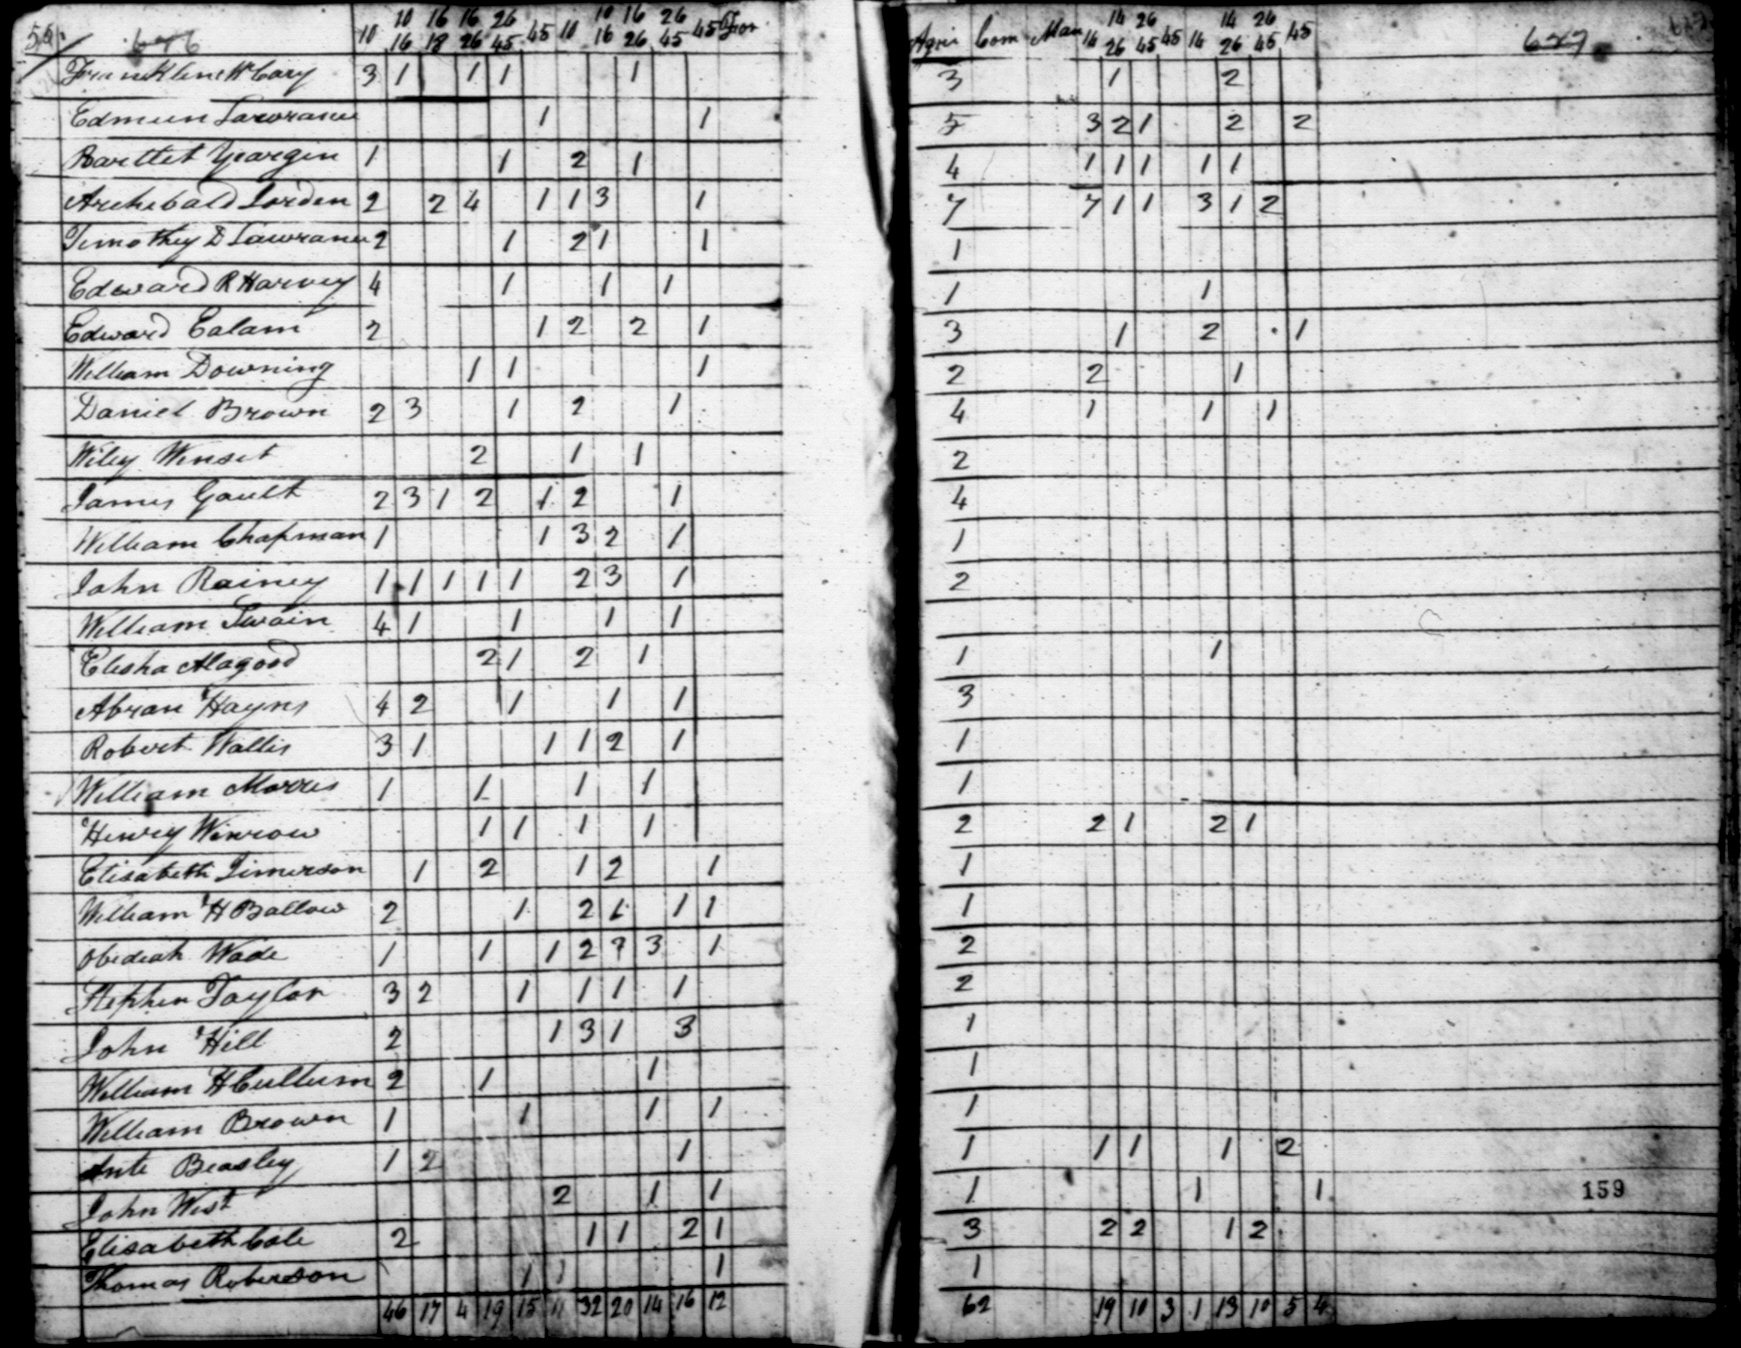 10 10 16 16 26 45 10 10 16 26 45 For
16 18 26 45 16 26 45
Agri Com Man 14 14 26 45 14 14 26 45
26 45 26 45
Franklin W Cary 3 1 1 1 1 3 1 2
Edmun Lawrance 1 1 5 3 2 1 2 2
Bartlet Yeargin 1 1 2 1 4 1 1 1 1 1
Archebald Lorden 2 2 4 1 1 3 1 7 7 1 1 3 1 2
Timothey D Lawrance 2 1 2 1 1 1
Edward R Harvey 4 1 1 1 1 1
Edward Ealam 2 1 2 2 1 3 1 2 1
William Downing 1 1 1 2 2 1
Daniel Brown 2 3 1 2 1 4 1 1 1
Wiley Winset 2 1 1 2
James Gault 2 3 1 2 1 2 1 4
William Chapman 1 1 3 2 1 1
John Rainey 1 1 1 1 1 2 3 1 2
William Swain 4 1 1 1 1
Elisha Alagood 2 1 2 1 1 1
Abram Hayns 4 2 1 1 1 3
Robert Wallis 3 1 1 1 2 1 1
William Morris 1 1 1 1 1
Henrey Winrow 1 1 1 1 2 2 1 2 1
Elisabeth Jimerson 1 2 1 2 1 1
William H Ballow 2 1 2 1 1 1 1
Obediah Wade 1 1 1 2 7 3 1 2
Stephen Taylor 3 2 1 1 1 1 2
John Hill 2 1 3 1 3 1
William H Cullum 2 1 1 1
William Brown 1 1 1 1 1
Beasley 1 2 1 1 1 1 1 2
John West 2 1 1 1 1 1
159
Elisabeth Cole 2 1 1 2 1 3 2 2 1 2
Thomas Roberson 1 1 1 1
46 17 4 19 15 11 32 20 14 16 12 62 19 10 3 1 13 10 5 4